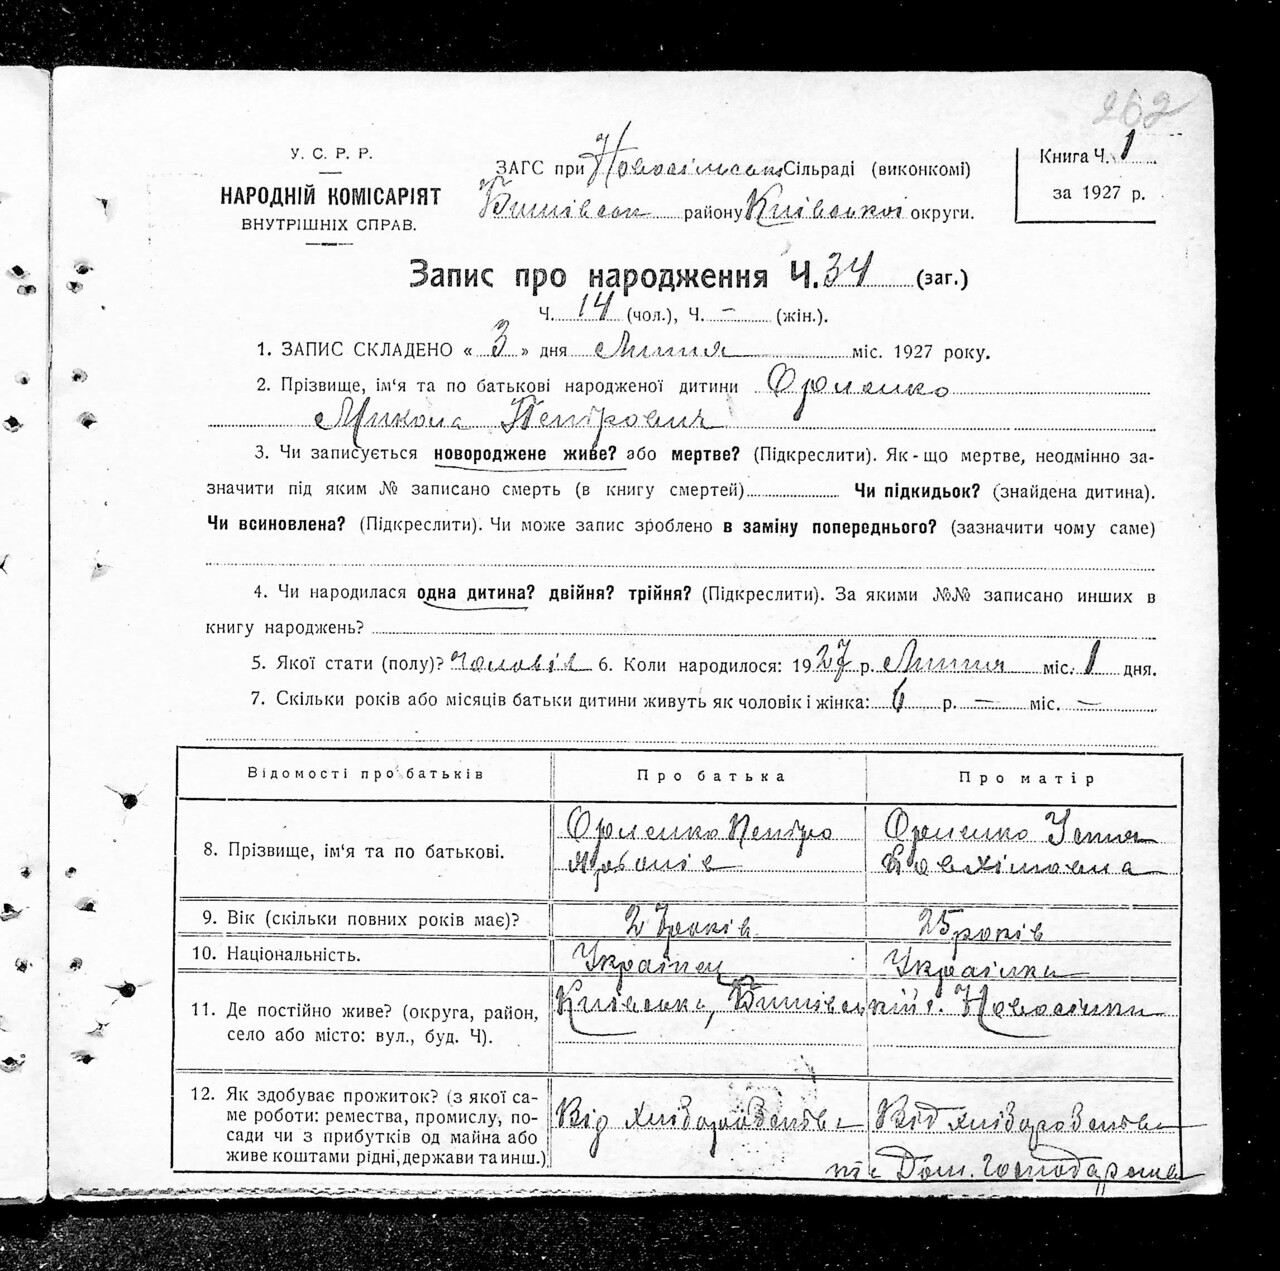 262
У. С. Р. Р.
НАРОДНІЙ КОМІСАРІЯТ
ВНУТРІШНІХ СПРАВ.
ЗАГС при Новосілськ Сільраді (виконкомі)
Бишівськ району Київської округи.
Книга Ч. 1
за 1927 р.
Запис про народження Ч. 34 (заг.)
Ч. 14 (чол.), Ч. – (жін.).
1. ЗАПИС СКЛАДЕНО « 3 » дня Липня міс. 1927 року.
2. Прізвище, ім‘я та по батькові народженої дитини
Микола Петрович
3. Чи записується новороджене живе? або мертве? (Підкреслити). Як-що мертве, неодмінно за-
значити під яким № записано смерть (в книгу смертей) Чи підкидьок? (знайдена дитина).
Чи всиновлена? (Підкреслити). Чи може запис зроблено в заміну попереднього? (зазначити чому саме)
4. Чи народилася одна дитина? двійня? трійня? (Підкреслити). За якими №№ записано инших в
книгу народжень?
5. Якої стати (полу)? Чоловіч 6. Коли народилося: 1927 р. Липня міс. 1 дня.
7. Скільки років або місяців батьки дитини живуть як чоловік і жінка: 6 р. – міс. –
Відомості про батьків Про батька Про матір
8. Прізвище, ім‘я та по батькові.
Петро
9. Вік (скільки повних років має)? 27 років 25 років
10. Національність. Українец Українка
11. Де постійно живе? (округа, район,
село або місто: вул., буд. Ч).
Київська, Бишівський. Новосілки
12. Як здобуває прожиток? (з якої са-
ме роботи: ремества, промислу, по-
сади чи з прибутків од майна або
живе коштами рідні, держави та инш.)
Від хліборобства Від хліборобства
Дом. Господарства